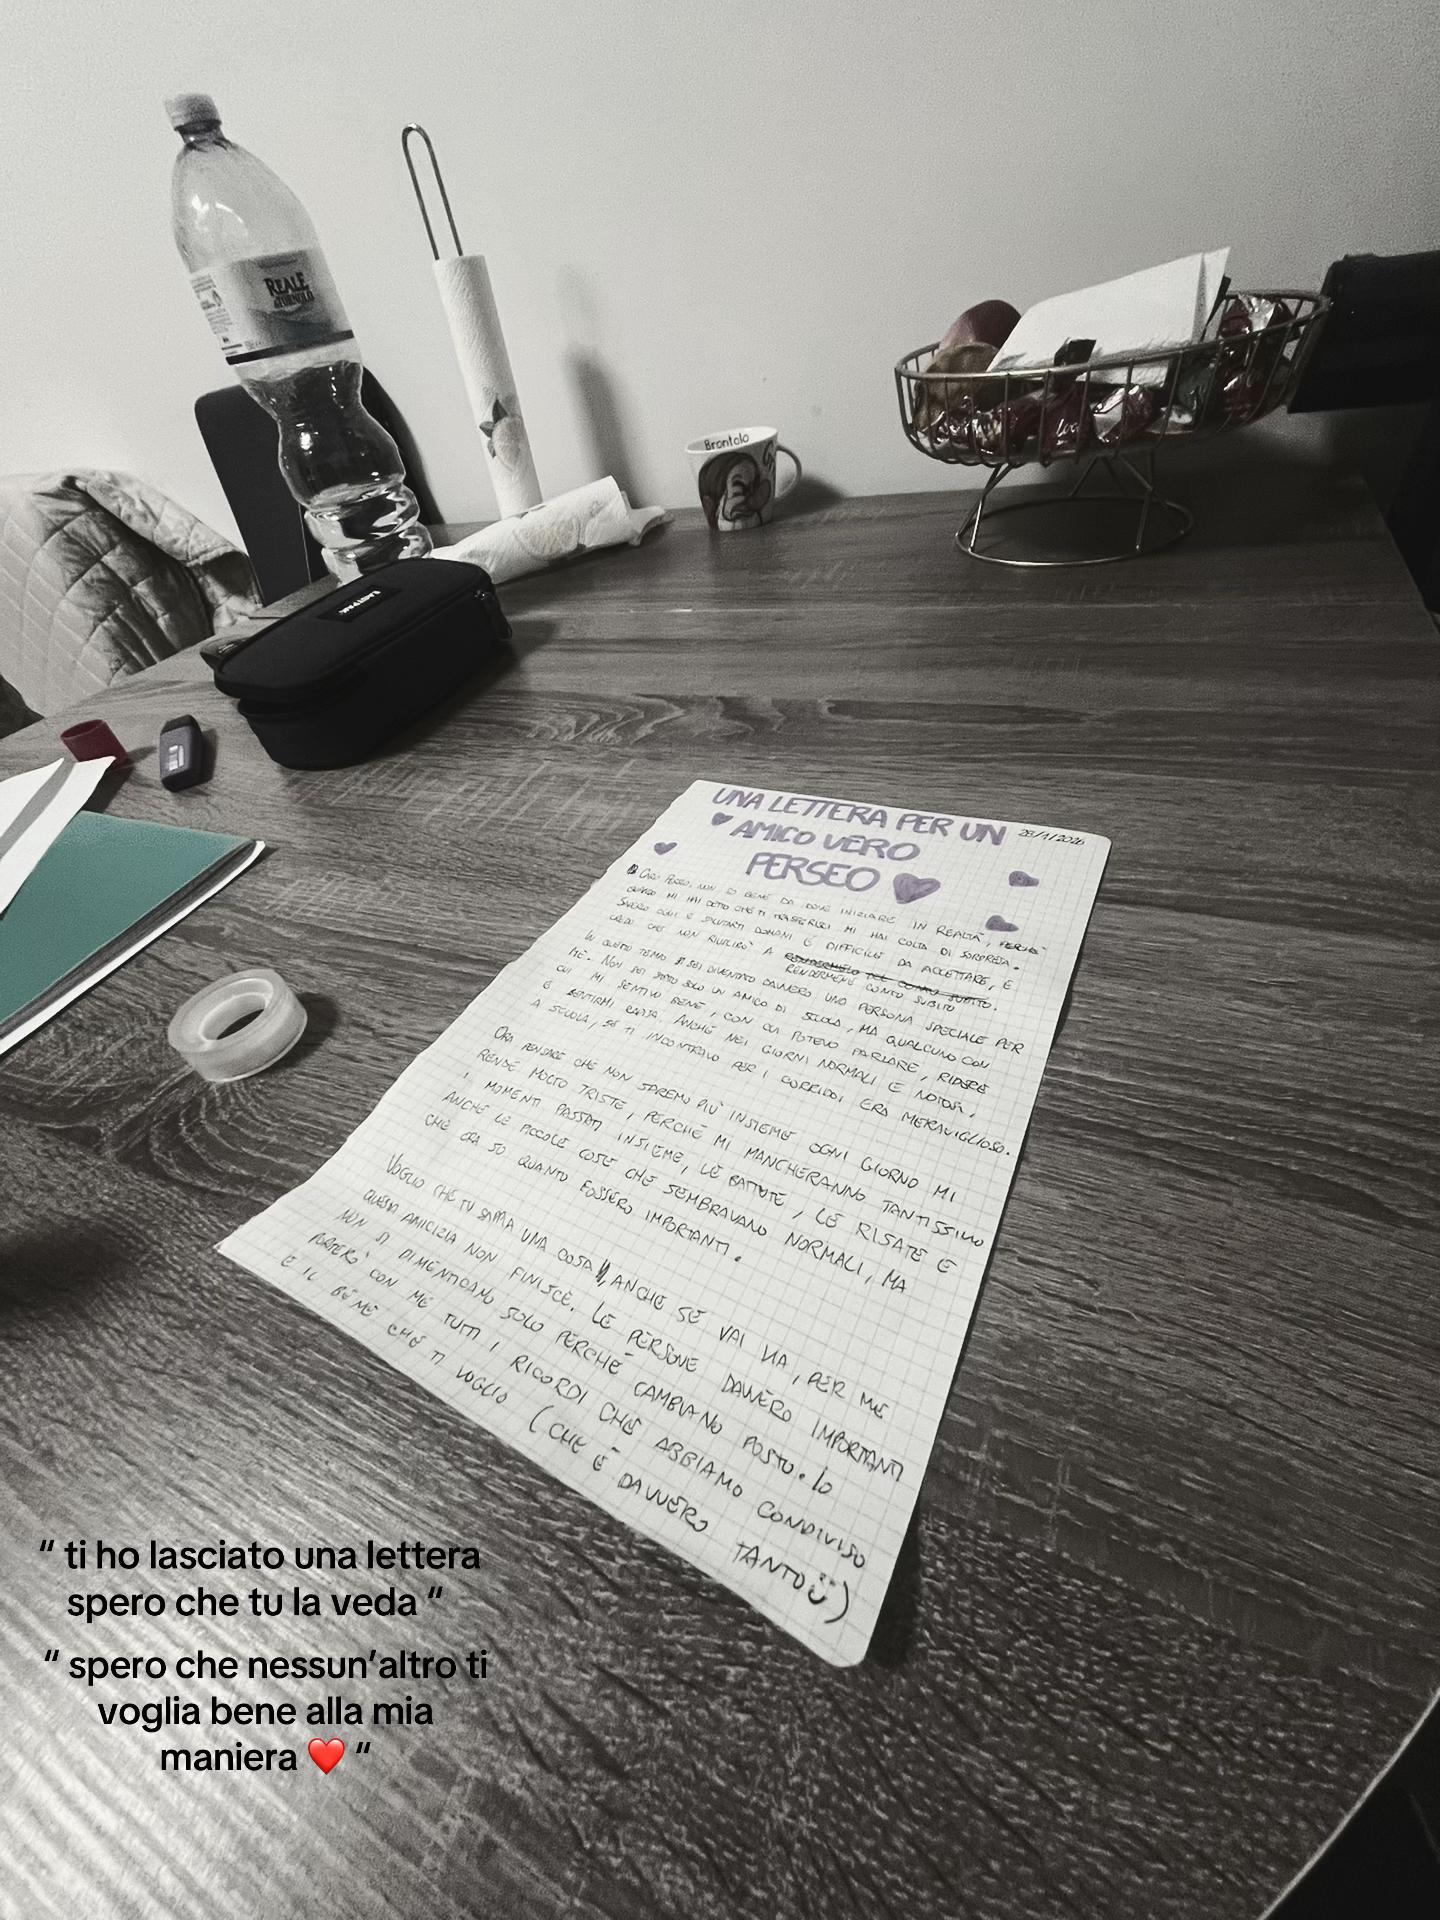 REALE
Brontolo
EASTPAK
UNA LETTERA PER UN
AMICO VERO
PERSEO
28/1/2026
CARO PERSEO, NON SO BENE DA DOVE INIZIARE IN REALTÀ, PERCHÈ
QUANDO MI HAI DETTO CHE TI TRASFERISCI MI HAI COLTA DI SORPRESA.
SAPERO OGGI E SALUTARTI DOMANI È DIFFICILE DA ACCETTARE, E
CREDO CHE NON RIUSCIRÒ A RENDERMELO DEL CONTO SUBITO
RENDERMENE CONTO SUBITO.
IN QUESTO TEMPO SEI DIVENTATO DAVVERO UNA PERSONA SPECIALE PER
ME. NON SEI STATO SOLO UN AMICO DI SCUOLA, MA QUALCUNO CON
CUI MI SENTIVO BENE, CON CUI POTEVO PARLARE, RIDERE
E SENTIRMI CAPITA. ANCHE NEI GIORNI NORMALI E NOIOSI,
A SCUOLA, SE TI INCONTRAVO PER I CORRIDOI ERA MERAVIGLIOSO.
ORA PENSARE CHE NON SAREMO PIÙ INSIEME OGNI GIORNO MI
RENDE MOLTO TRISTE, PERCHÈ MI MANCHERANNO TANTISSIMO
I MOMENTI PASSATI INSIEME, LE BATTUTE, LE RISATE E
ANCHE LE PICCOLE COSE CHE SEMBRAVANO NORMALI, MA
CHE ORA SO QUANTO FOSSERO IMPORTANTI.
VOGLIO CHE TU SAPPIA UNA COSA, ANCHE SE VAI VIA, PER ME
QUESTA AMICIZIA NON FINISCE. LE PERSONE DAVVERO IMPORTANTI
NON SI DIMENTICANO SOLO PERCHÈ CAMBIANO POSTO. IO
PORTERÒ CON ME TUTTI I RICORDI CHE ABBIAMO CONDIVISO
E IL BENE CHE TI VOGLIO (CHE È DAVVERO TANTO)
“ ti ho lasciato una lettera
spero che tu la veda “
“ spero che nessun’altro ti
voglia bene alla mia
maniera ❤️ “